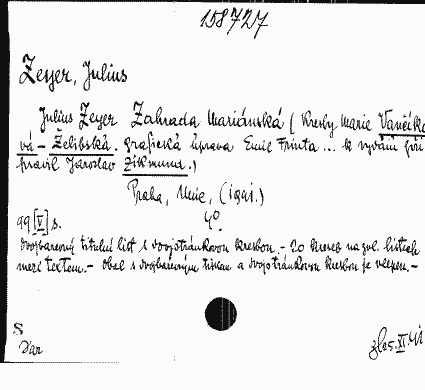 158727
Zeyer, Julius
Julius Zeyer Zahrada Mariánská (Kresby Marie Vančíko
vá - Želibská. grafická úprava Emil Frinta ... k vydání při
pravil Jaroslav Zikmund.)
Praha, Unie, (1941.)
4°.
99 [V] s.
Dvojbarevný titulní list s dvojstránkovou kresbou. - 20 kreseb na zvl. listech
mezi textem. - Obal s dvojbarevným tiskem a dvojstránkovou kresbou je vlepen. -
S
Dar
25.XI.41